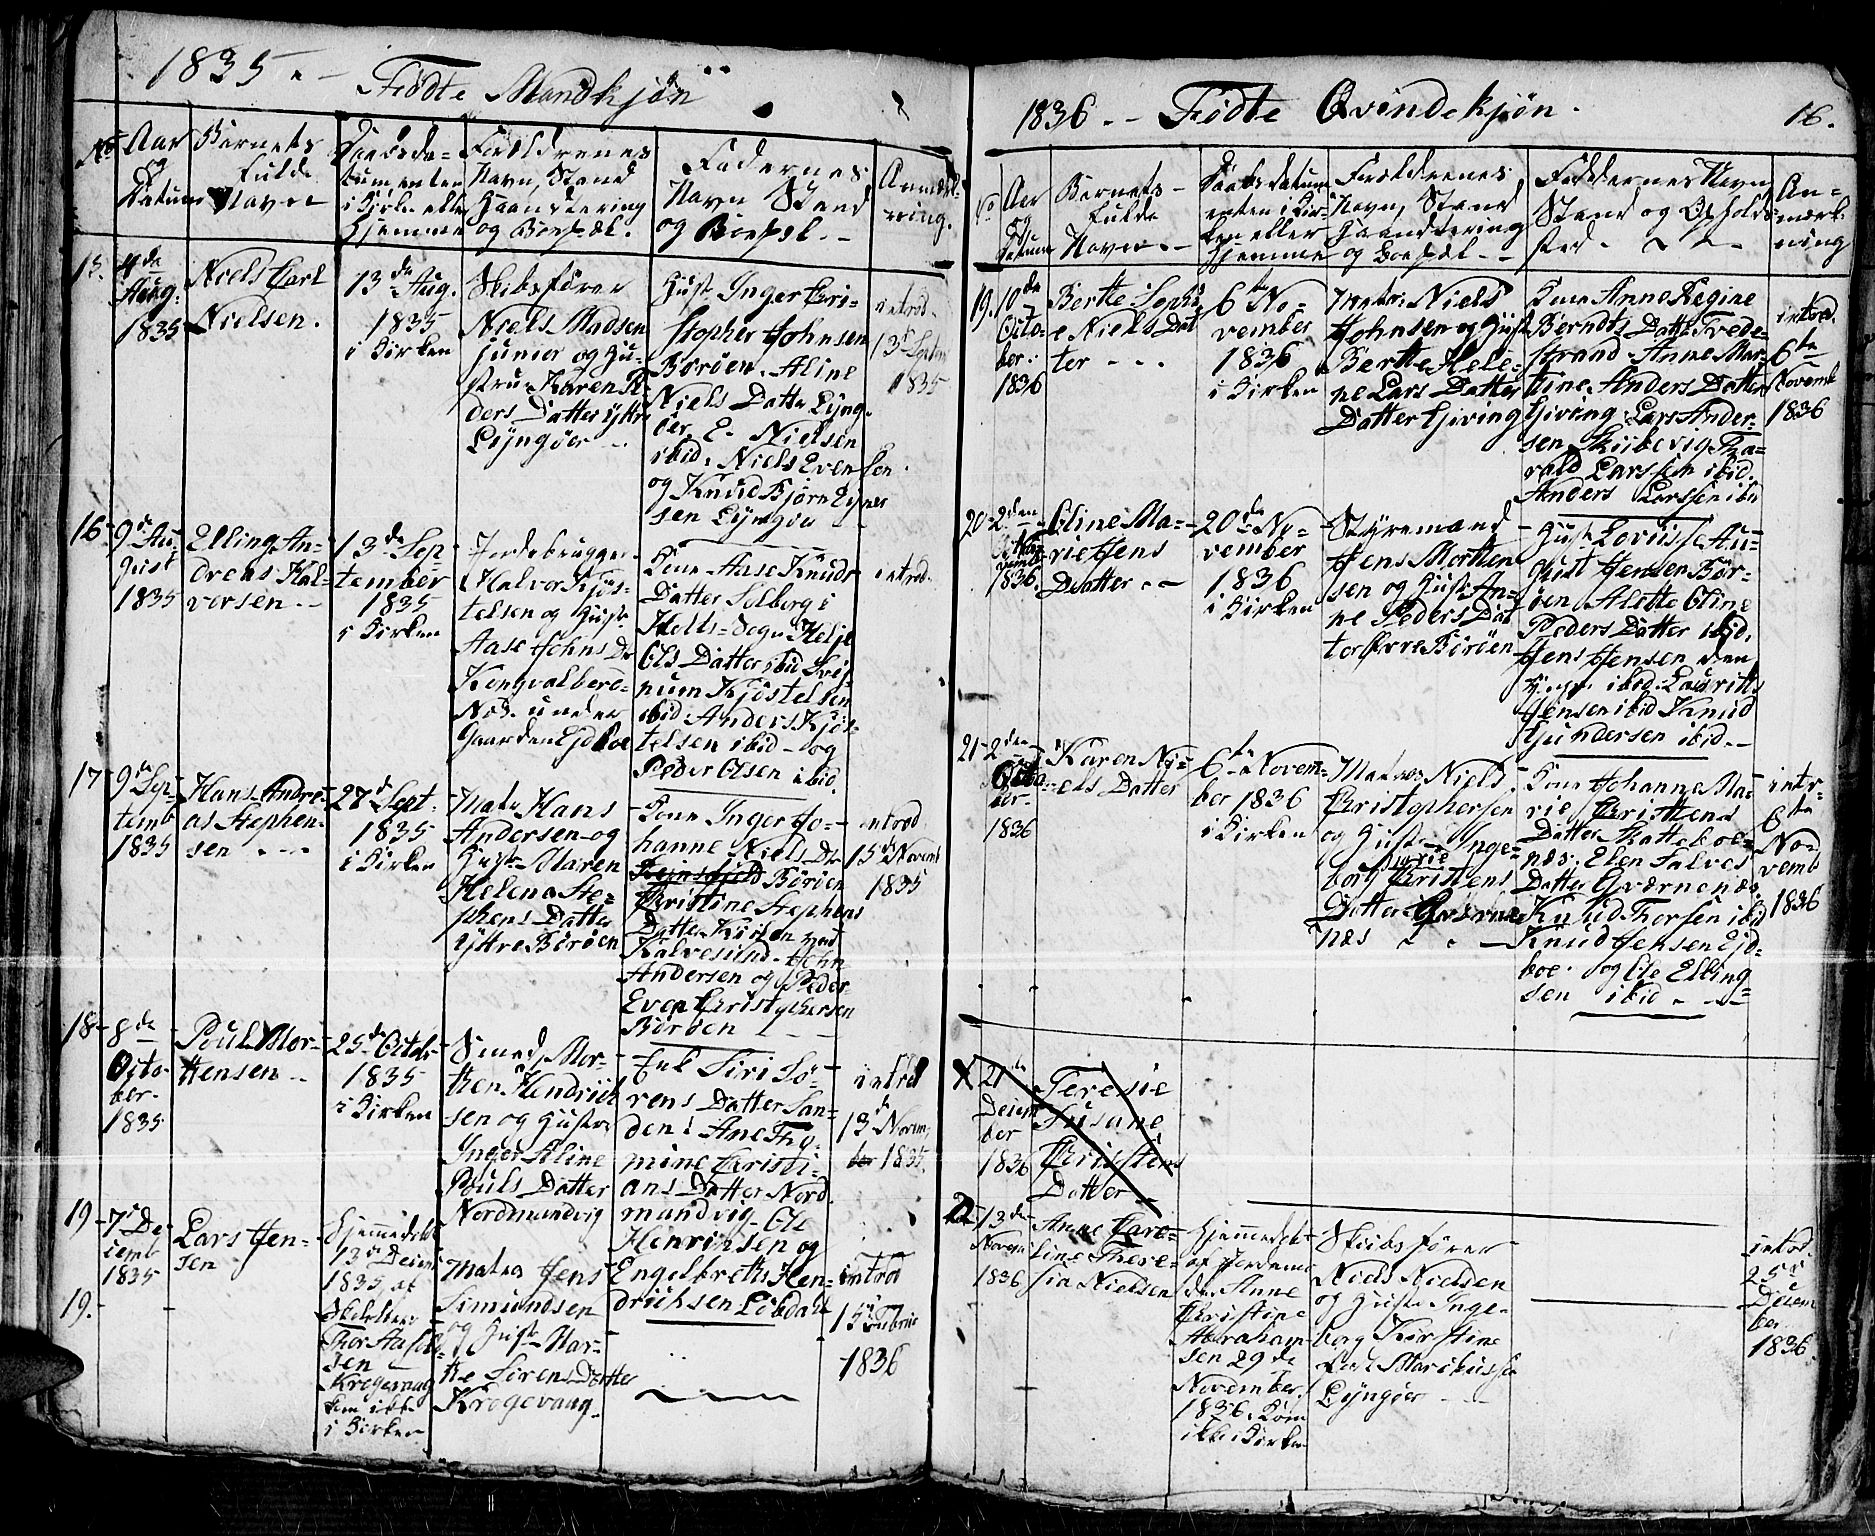 1835. - Fødte Mandkjøn
No
Aar
og
Datum
Barnets
fulde
Navn
Daabsda=
tum enten
i Kirke eller
Hjemme
Forældrenes
Navn, Stand
Haandtering
og Bopæl.
Faddernes
Navn Stand
og Bopæl. -
Anmærk-
ning.
15.
4de
Aug.
1835
Niels Carl
Nielsen.
13de Aug.
1835
i Kirken
Skibsfører
Niels Madsen
junior og Hu-
stru Karen
ders Datter Yttre
Lyngøer
Hust. Inger Chri-
stopher Johnsen
Borøen. Aline
Niels Datter Lyng-
øer. E. Nielsen
ibid. Niels Evensen
og Knud Bjørn
sen Lyngøer
introd.
13
1835
16
9de Au-
gust
1835
Elling An-
dreas Hal-
vorsen. -
13de Sep-
tember
1835
i Kirken
Jordebruger
Halvor Kjøs-
telsen og Hust.
Aase Johns Dr
Kongvalbere-
Nød. under
Gaarden Ejdboe
Kone Aase Knuds
Datter Solberg i
Holts-Sogn Helje
Ols Datter ibid
num Kjøstelsen
ibid. Anders Kjøs-
telsen ibid - og
Peder Olsen ibid.
introd.
17
9de Sep-
temb
1835
Hans Andre-
as Stephen-
sen
27de Sept.
1835
i Kirken
Matr. Hans
Andersen og
Hust. Maren
Helena Ste-
phens Datter
Yttre Borøen
Kone Inger Jo-
hanne Niels Dr
Borøen
Christine Stephens
Datter
Kalvesund. John
Andersen og Peder
Even Christophersen
Borøen
introd.
15de Novemb
1835
18
8de
Octo-
ber.
1835
Poul Mor-
tensen
25de Octobr
1835
i Kirken
Smed, Mor-
ten Hendrich
sen og Hustr.
Inger Aline
Pouls Datter
Nordmundvig
Enk Siri Sø-
rens Datter San-
den. Ane Tho-
mine Christi-
ans Datter Nord
mundvig. Ole
Henrichsen og
Engelbreth Hen-
drichsen Løbdahl
introd
13de Novem-
ber 1835.
19
7de De-
cemb
1835
Lars Jen-
sen
Hjemmedøbt
13de Decem
1835, af
Skoleholder
Thor Aasold-
sen
Krogevaag
kom ikke
i Kirken
Matros Jens
Simundsen
og Hust. Mar-
the Sørens Datter
Krogevaag.
introd
15de Februa
1836
19.
1836. - Fødte Qvindekjøn.
16.
No
Aar
og
Datum
Barnets
fulde
Navn. -
Daabsdatum
enten i Kir-
ken eller
Hjemme
Forældrenes
Navn, Stand
Haandtering
og Bopæl -
Faddernes Navn
Stand og Opholds
sted.
An=
mærk-
ning
19.
10de
Octo-
ber.
1836
Berthe Sophi
e Niels Dat
ter
6te No-
vember
1836
i Kirken
Matr. Niels
Johnsen og Hust
Berthe Hele-
ne Lars Datter
Datter Gjeving
Kone Anne Regine
Berndts Datter Frede-
strand. Anne Mar-
tine Anders Datter
Gjeving. Lars Ander-
sen Skiibevig
vald Larssen ibid.
Anders Larssen ibid
introd.
6te
Novemb
1836
20
2den
1836.
Oline Ma-
rie Jens
Datter. -
20de No-
vember
1836
i Kirken
Styremand
Jens Morthen
sen og Hust. An-
ne Peders Dat
ter Øvre Borøen
Hust. Lovisse Au-
gust Jensen Bor-
øen Alette Oline
Peders Datter ibid.
Jens Jensen den
ibid. Lauritts
Jensen ibid Knud
Gundersen ibid. -
21
2den
Octo-
ber-
1836
Karen Ni-
els Datter
6te Novem-
ber 1836
i Kirken
Matros Niels
Christophersen
og Hust. Inge-
borg Marie Christens
Datter Qværne
næs
Kone Johanne Ma-
rie Christhens
Datter Katteboe-
næs. Elen Salves
Datter Qværnenæs
Knud Thorsen ibid
Knud Jensen Ejd-
boe. og Ole Elling
sen ibid
intr-
6te
No-
vemb
1836
21de
Decem
ber
1836
Teresie
Susane
Christens
Datter
13de
Novem
1836
Anne Caro-
line There-
sia Nielsen
Hjemmedøbt
af Jordemo
der Anne
Christine
Abraham-
sen 29de
November.
1836. kom
ikke i Kirken
Skibsfører
Niels Nielsen
og Hust. Inge-
borg Kirstine
Marikusse
Lyngøer
introd.
25de
Decem
ber
1836